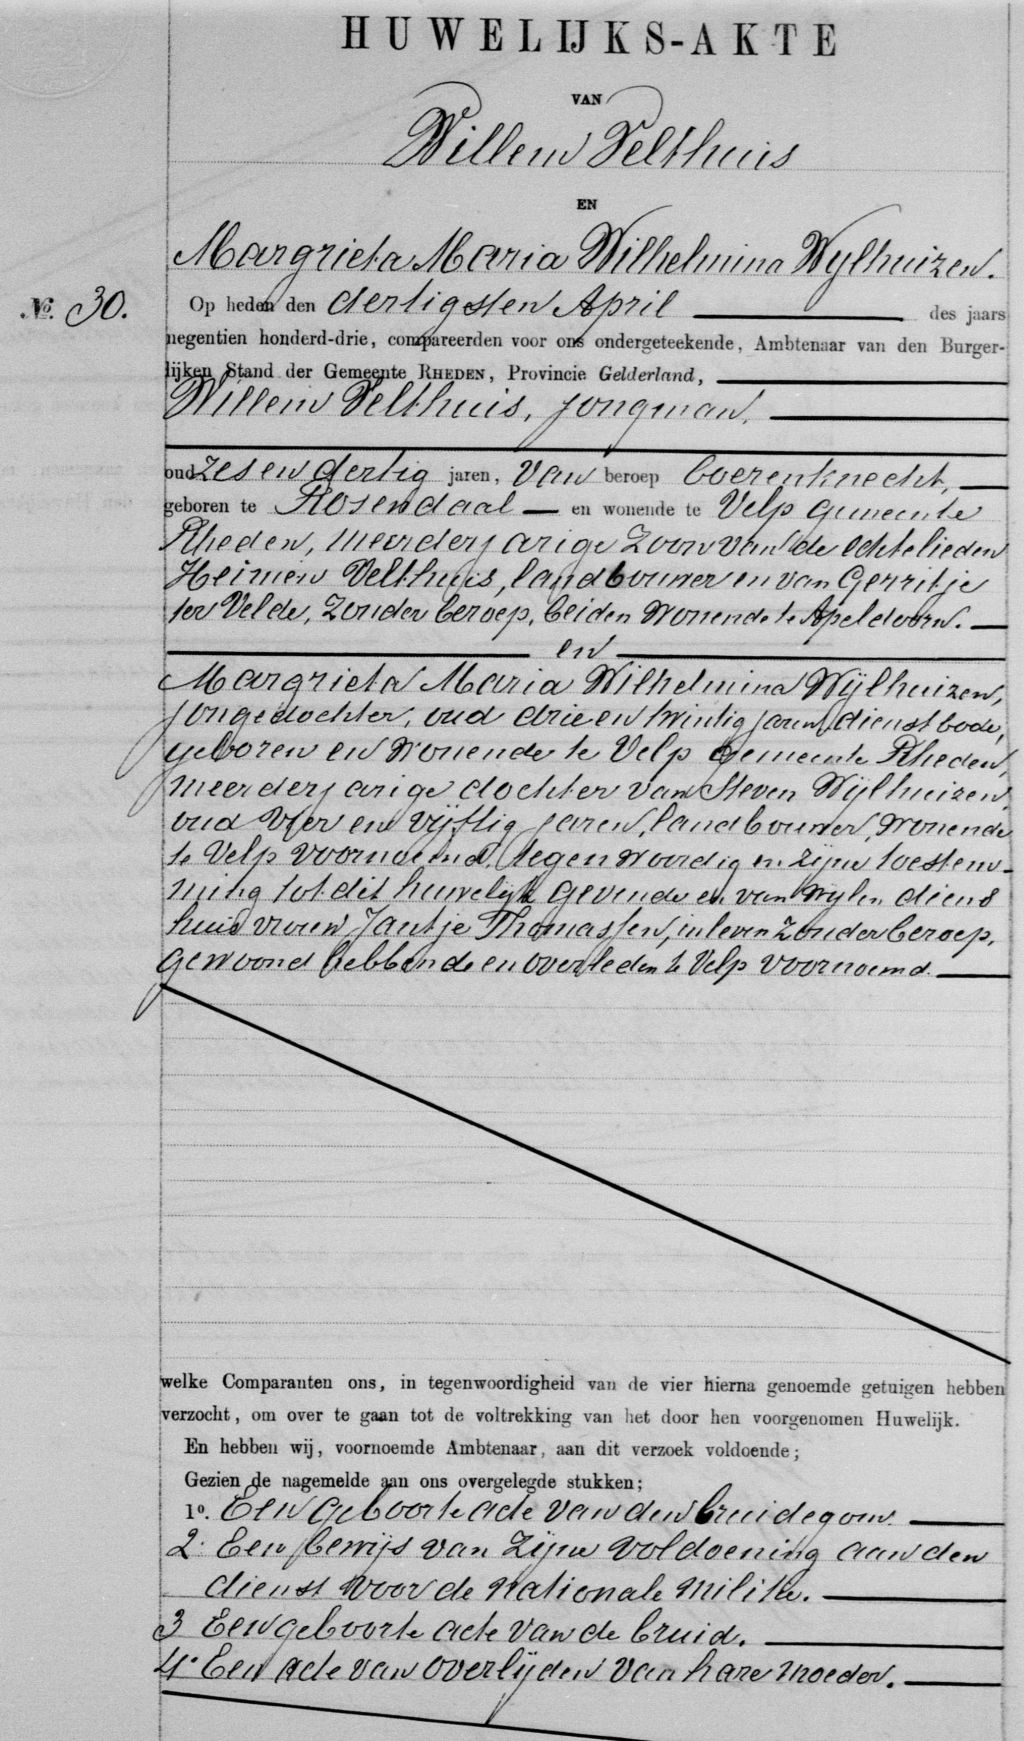 HUWELIJKS-AKTE
VAN
Willem Velthuis
EN
Margrieta Maria Wilhelmina Wijlhuizen.
No. 30. Op heden den dertigsten April des jaars
negentien honderd-drie, compareerden voor ons ondergeteekende, Ambtenaar van den Burger-
lijken Stand der Gemeente RHEDEN, Provincie Gelderland,
Willem Velthuis, jongman,
oud zesendertig jaren, van beroep boerenknecht,
geboren te Rosendaal en wonende te Velp gemeente
Rheden, meerderjarige zoon van de echtelieden
Heimen Velthuis, landbouwer en van Gerritje
ter Velde, zonder beroep, beiden wonende te Apeldoorn.
en
Margrieta Maria Wilhelmina Wijlhuizen,
jongedochter, oud drieentwintig jaren, dienstbode,
geboren en wonende te Velp gemeente Rheden,
meerderjarige dochter van Steven Wijlhuizen,
oud vier en vijftig jaren, landbouwer, wonende
te Velp voornoemd, tegenwoordig en zijne toestem-
ming tot dit huwelijk gevende en van wijlen diens
huisvrouw Jantje Thomassen, in leven zonder beroep,
gewoond hebbende en overleden te Velp voornoemd.
welke Comparanten ons, in tegenwoordigheid van de vier hierna genoemde getuigen hebben
verzocht, om over te gaan tot de voltrekking van het door hen voorgenomen Huwelijk.
En hebben wij, voornoemde Ambtenaar, aan dit verzoek voldoende;
Gezien de nagemelde aan ons overgelegde stukken;
1o. Een geboorteacte van den bruidegom.
2. Een bewijs van zijne voldoening aan den
dienst voor de nationale militie.
3 Een geboorte acte van de bruid.
4. Een acte van overlijden van hare moeder.